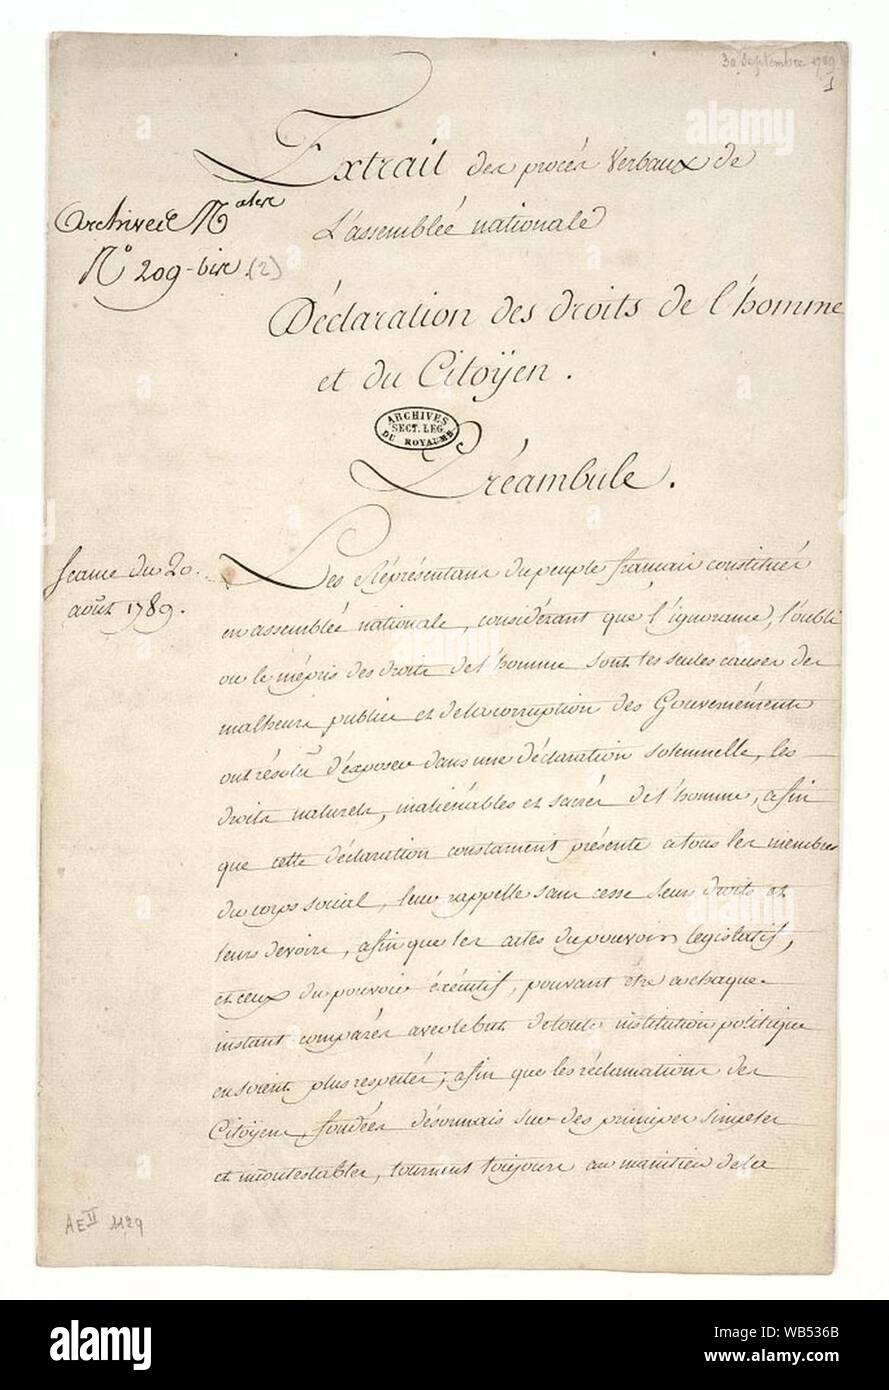 30 Septembre 1789
1
Extrait des procès Verbaux de
L'assemblée nationale
Archives Nales
N° 209-bis (2)
Déclaration des droits de l'homme
et du Citoÿen.
ARCHIVES
SECT. LEG.
DU ROYAUME
Préambule.
Seance du 20.
août 1789.
Les Réprésentans du peuple francais constitués
en assemblée nationale, considérant que l'ignorance, l'oubli
ou le mépris des droits de l'homme sont les seules causes des
malheurs publics et de la corruption des Gouvernéments
ont résolu d'exposer dans une déclaration solemnelle, les
droits naturels, inaliénables et sacrés de l'homme, afin
que cette déclaration constament présente a tous les membres
du corps social, leur rappelle sans cesse leurs droits et
leurs devoirs, afin que les actes du pouvoir legislatif,
et ceux du pouvoir éxécutif, pouvant être a chaque
instant comparés avec le but de toute institution politique
en soient plus respectés; afin que les réclamations des
Citoÿens, fondées désormais sur des principes simples
et incontestables, tournent toujours au maintien de la
AE II 1129
alamy
WB536B
www.alamy.com